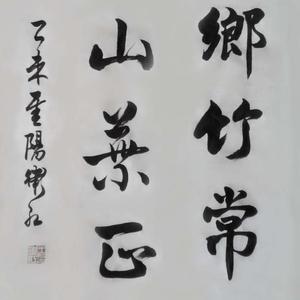 鄉竹常
山葉正
乙未重陽